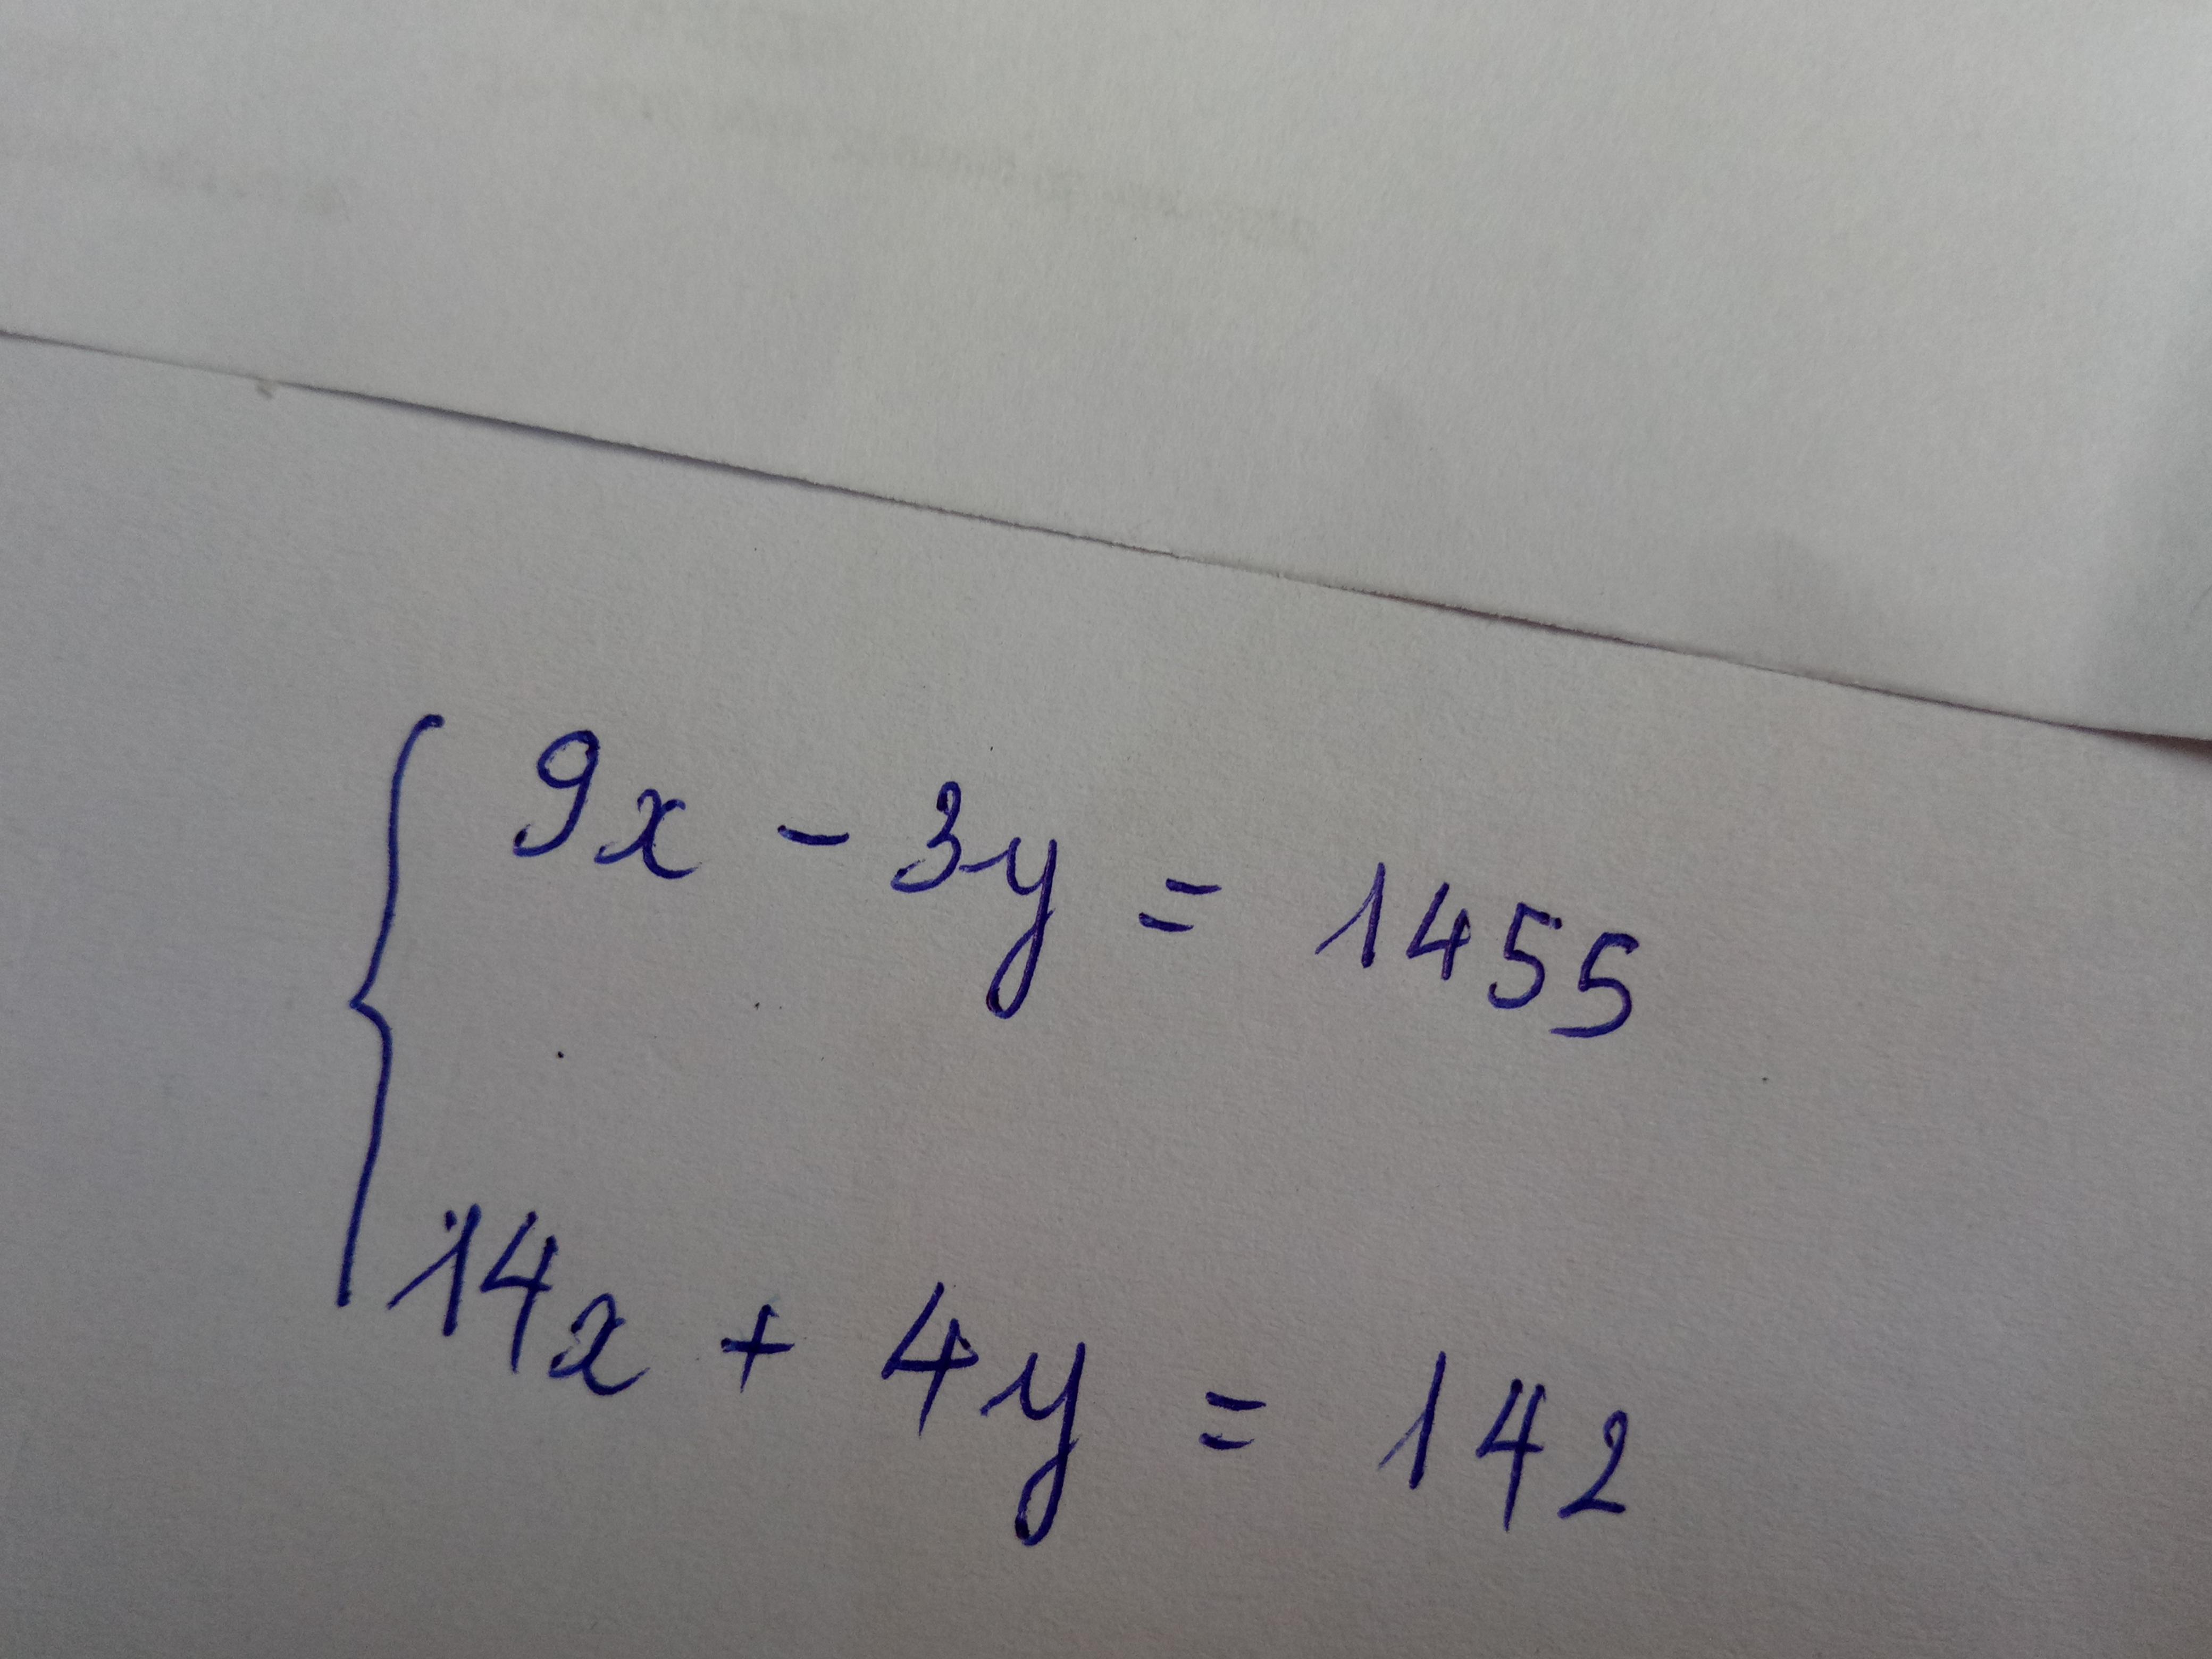 9x - 3y = 1455
14x + 4y = 142